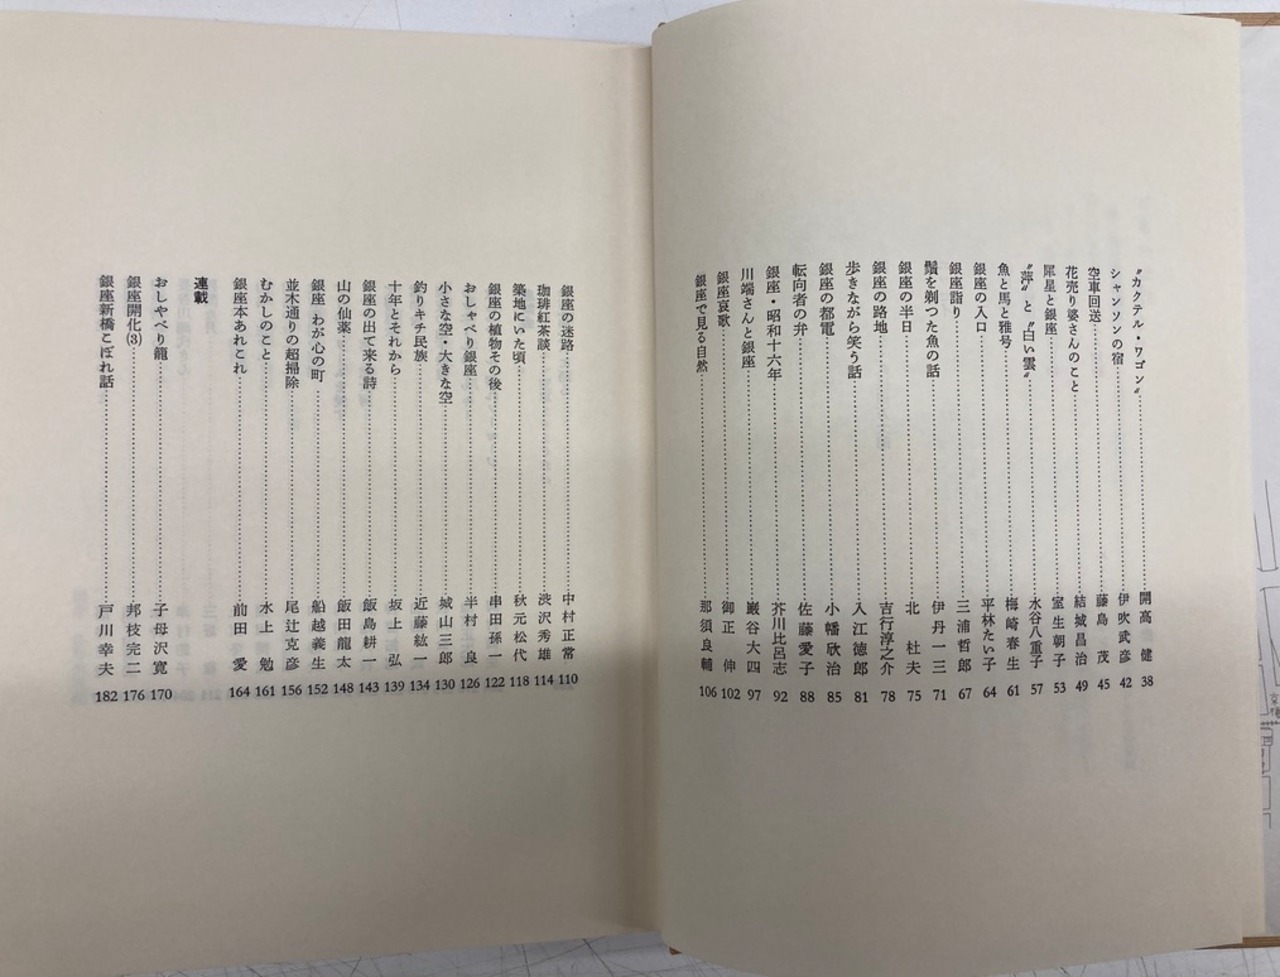 〝カクテル・ワゴン〟……開高 健 38
シャンソンの宿……伊吹武彦 42
空車回送……藤島 茂 45
花売り婆さんのこと……結城昌治 49
犀星と銀座……室生朝子 53
〝萍〟と〝白い雲〟……水谷八重子 57
魚と馬と雅号……梅崎春生 61
銀座の入口……平林たい子 64
銀座詣り……三浦哲郎 67
鬚を剃つた魚の話……伊丹一三 71
銀座の半日……北 杜夫 75
銀座の路地……吉行淳之介 78
歩きながら笑う話……入江徳郎 81
銀座の都電……小幡欣治 85
転向者の弁……佐藤愛子 88
銀座・昭和十六年……芥川比呂志 92
川端さんと銀座……巌谷大四 97
銀座哀歌……御正 伸 102
銀座で見る自然……那須良輔 106
銀座の迷路……中村正常 110
珈琲紅茶談……渋沢秀雄 114
築地にいた頃……秋元松代 118
銀座の植物その後……串田孫一 122
おしゃべり銀座……半村 良 126
小さな空・大きな空……城山三郎 130
釣りキチ民族……近藤紘一 134
十年とそれから……坂上 弘 139
銀座の出て来る詩……飯島耕一 143
山の仙薬……飯田龍太 148
銀座 わが心の町……船越義生 152
並木通りの超掃除……尾辻克彦 156
むかしのこと……水上 勉 161
銀座本あれこれ……前田 愛 164
連載
おしやべり籠……子母沢寛 170
銀座開化(3)……邦枝完二 176
銀座新橋こぼれ話……戸川幸夫 182
京橋